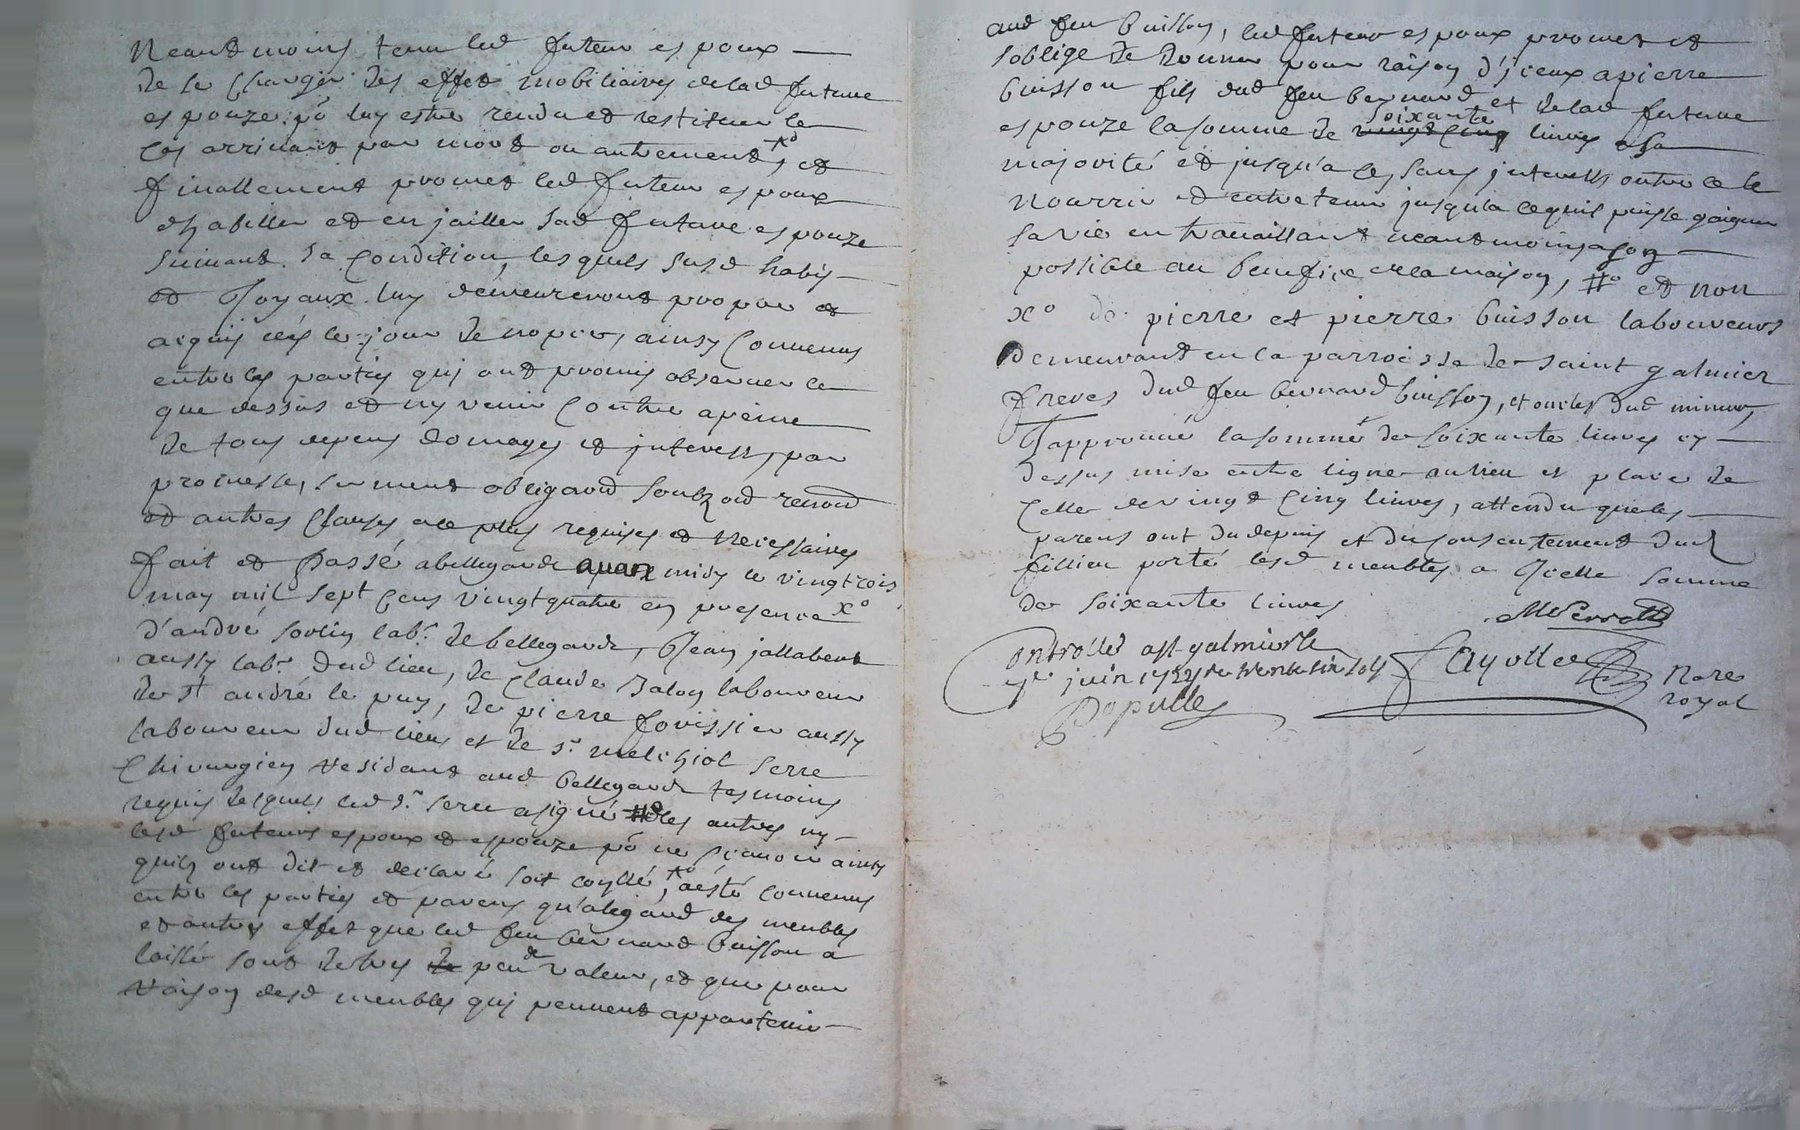 Neantmoins tenu led futeur espoux
de se charger des effet mobiliaires delad future
espouze po luy estre rendu et restituer le
cas arrivant par mort ou autrement, xo et
finallement promet led futeur espoux
dhabiller et enjailler sad future espouze
suivant sa condition, lesquels susd habis
et Joyaux luy demeureront propre et
acquis dés le jour de nopces, ainsy convenus
entre les parties qui ont promis observer ce
que dessus et ny venir contre apeine
de tous depens domages et interests, par
promesse, serment obligaon soubzon renon
et autres clauses ace plus requises et necessaires
fait et Passé abellegarde avant midy le vingttrois
may mil sept cens vingtquatre en presence xo
d'andré lab.r de bellegarde, Jean jallabert
aussy lab.r dud lieu, de Claude laboureur
de st andré le puy, de pierre aussy
laboureur dud lieu et de s.r melchiol serre
Chirurgien residant aud bellegarde tesmoins
requis desquels led s.r serre asigné les autres ny
lesd futeurs espoux et espouze po ne sçavoir ainsy
quils ont dit et declaré soit coyllé, xo aesté convenus
entre les parties et parens qu'alegard des meubles
et autres effet que led feu bernard buisson a
laissé sont de tres peu de valeur, et que pour
raison desd meubles qui peuvent appartenir
aud feu buisson, led futeur espoux promet et
soblige de donner pour raison d'jceux apierre
buisson fils dud feu bernard et delad future
espouze lasomme de soixante livres asa
majorité et jusqu'a ce sans interests outre ce le
nourrir et entretenir jusqu'a cequil puisse gaigner
sa vie en travaillant neantmoins a son
possible au benefice de la maison, # et non
xo de pierre et pierre buisson laboureurs
demeurant en la parroisse de saint galmier
freres dud feu bernard buisson, et oncles dud mineur
Japprouvé lasomme de soixante livres cy
dessus mise entre ligne aulieu et place de
celle de vingt cinq livres, attendu que les
parens ont dudepuis et du consentement dud
fillieu porté lesd meubles a Jcelle somme
de soixante livres
Controllé ast galmier le
juin 1724 re trente six sols
Nore
royal